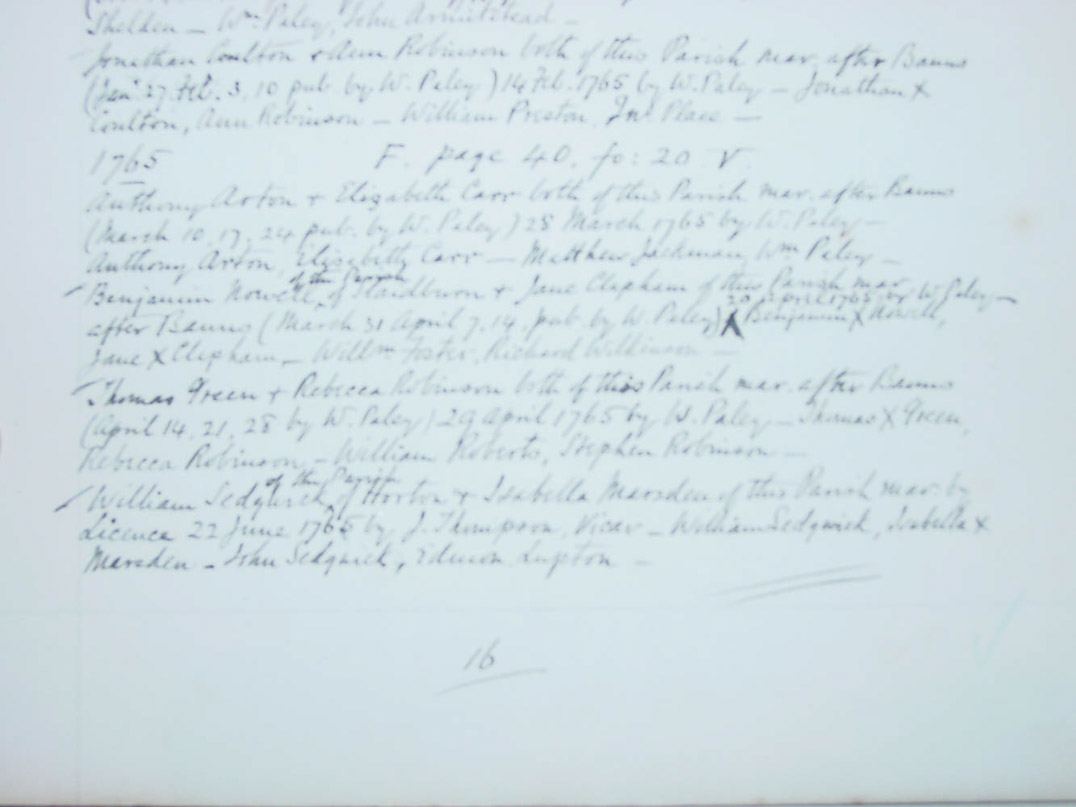 Shelden – Wm Paley, John Armitstead –
Jonathan Coulton + Ann Robinson both of this Parish mar. after Banns
(Jan 27. Feb. 3, 10 pub by W. Paley) 14 Feb. 1765 by W. Paley – Jonathan X
Coulton, Ann Robinson – William Preston, Place –
1765 F. page 40. fo: 20. V.
Anthony Arton + Elizabeth Carr both of this Parish mar. after Banns
(March 10, 17, 24 pub. by W. Paley) 28 March 1765 by W. Paley –
Anthony Arton, Elizabeth Carr – Matthew Jackman, Wm Paley –
of the Parish
Benjamin Nowell, of + Jane Clapham of this Parish mar.
20 April 1765 by W. Paley –
after Banns (March 31 April 7, 14, pub. by W. Paley) Benjamin X Nowell,
Jane X Clapham – Willm Foster, Richard Wilkinson –
Thomas Green + Rebecca Robinson both of this Parish mar. after Banns
(April 14, 21, 28 by W. Paley) 29 April 1765 by W. Paley – Thomas X Green,
Rebecca Robinson – William Roberts, Stephen Robinson –
of the Parish
William Sedgwick, of Horton + Isabella Marsden of this Parish mar. by
Licence 22 June 1765 by J. Thompson, Vicar – William Sedgwick, Isabella X
Marsden – John Sedgwick, Edmon Lupton –
16